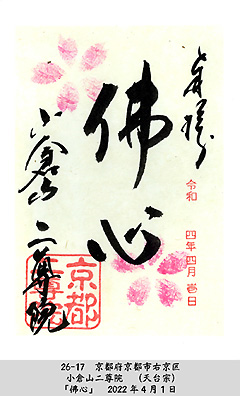 七月拝
佛心
令和 四年四月壱日
小倉山 二尊院
京都
26-17 京都府京都市右京区
小倉山二尊院 (天台宗)
「佛心」 2022年4月1日